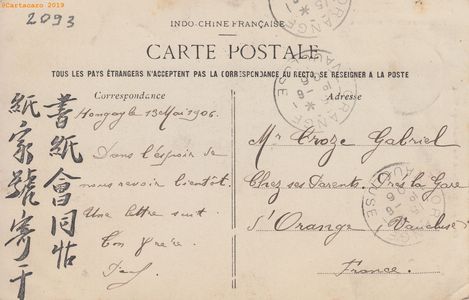 ©Cartacaro 2019
2093
INDO-CHINE FRANÇAISE
CARTE POSTALE
TOUS LES PAYS ÉTRANGERS N'ACCEPTENT PAS LA CORRESPONDANCE AU RECTO, SE RESEIGNER A LA POSTE
Correspondance
Hongay le 13 Mai 1906.
Dans l'espoir de
nous revoir bientôt.
Une lettre suit
Ton frère.
Adresse
Mr Croze Gabriel
Chez ses Parents. Près la Gare
d'Orange (Vaucluse)
France.
書紙會同帖
紙家號寄于
ORANGE
VAUCLUSE
ORANGE
VAUCLUSE